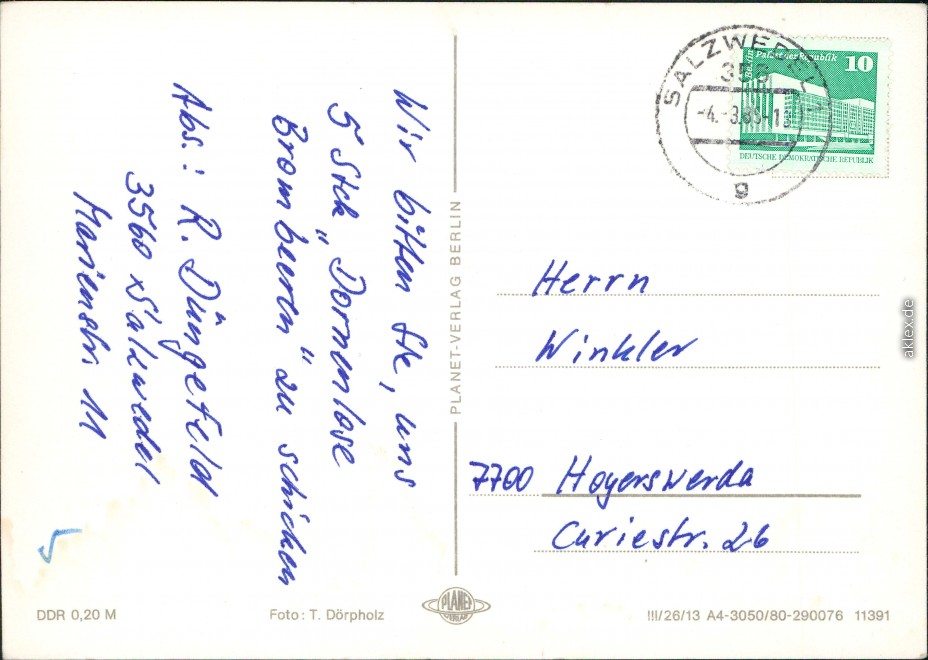 Wir bitten Sie, uns
5 Stck „Dornenlose
Brombeeren" zu schicken
Abs.: R. Düngefeld
3560 Salzwedel
Marienstr. 11
PLANET-VERLAG BERLIN
SALZWEDEL 1
356
-4.-3.86-1
g
Berlin Palast der Republik
10
DEUTSCHE DEMOKRATISCHE REPUBLIK
Herrn
Winkler
7700 Hoyerswerda
Curiestr. 26
DDR 0,20 M
Foto: T. Dörpholz
PLANET
VERLAG
III/26/13 A4-3050/80-290076 11391
aklex.de